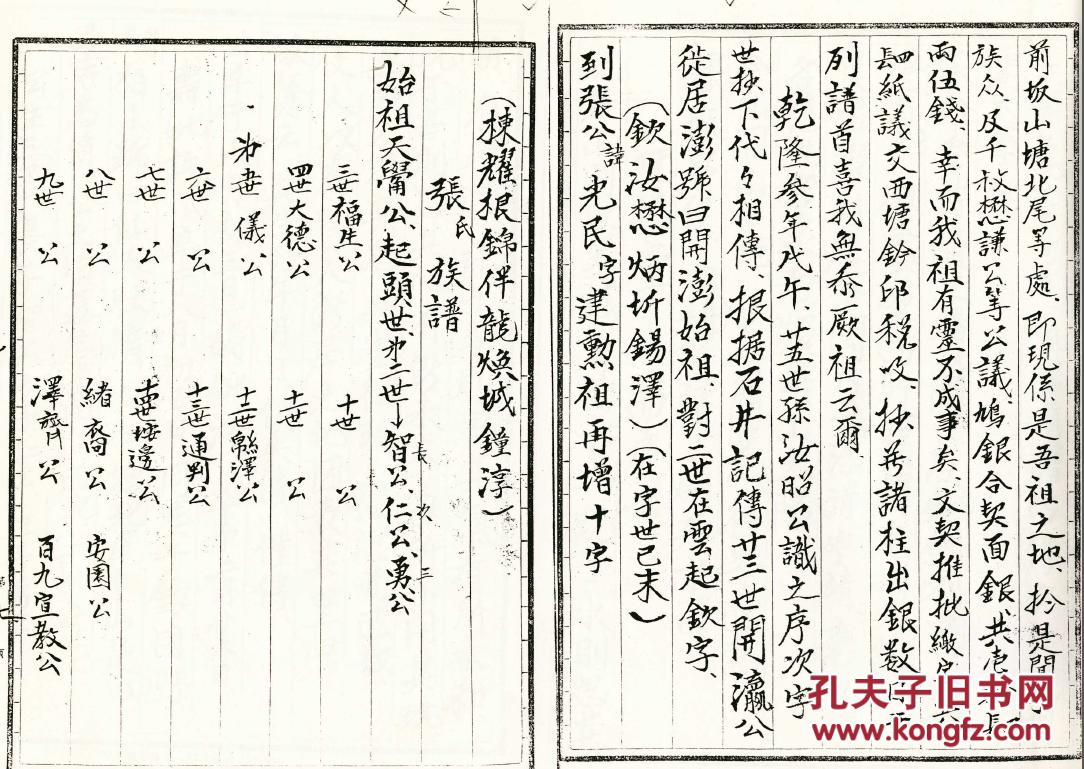 前坂山塘北尾等處、即現係是吾祖之地、於是間
族众、及千叔懋謙公等公議、鳩銀合契面銀、共壱
両伍錢、幸而我祖有靈、不成事矣、文契推批繳
紙議交西塘鈐印稅收、抄并諸柱出銀数
列譜首喜我無忝厥祖云爾
乾隆參年戊午、廿五世孫汝昭公識之序次字
世抄下代々相傳、根据石井記傳廿三世開瀛公
徙居澎號曰開澎始祖、對二世在雲起欽字、
(欽汝懋炳圻錫澤)(在字世已末)
到張公諱光民字建勲祖再增十字
(棟耀根錦伴龍煥城鐘淳)
張氏族譜
始祖天覺公、起頭世、第二世→長智公、次仁公、三勇公
三世福生公 十世 公
四世大德公 十一世 公
第五世 儀公 十二世縣澤公
六世 公 十三世通判公
七世 公 十四世坂邊公
八世 公 緒裔公 安園公
九世 公 澤齊公 百九宣教公
孔夫子旧书网
www.kongfz.com